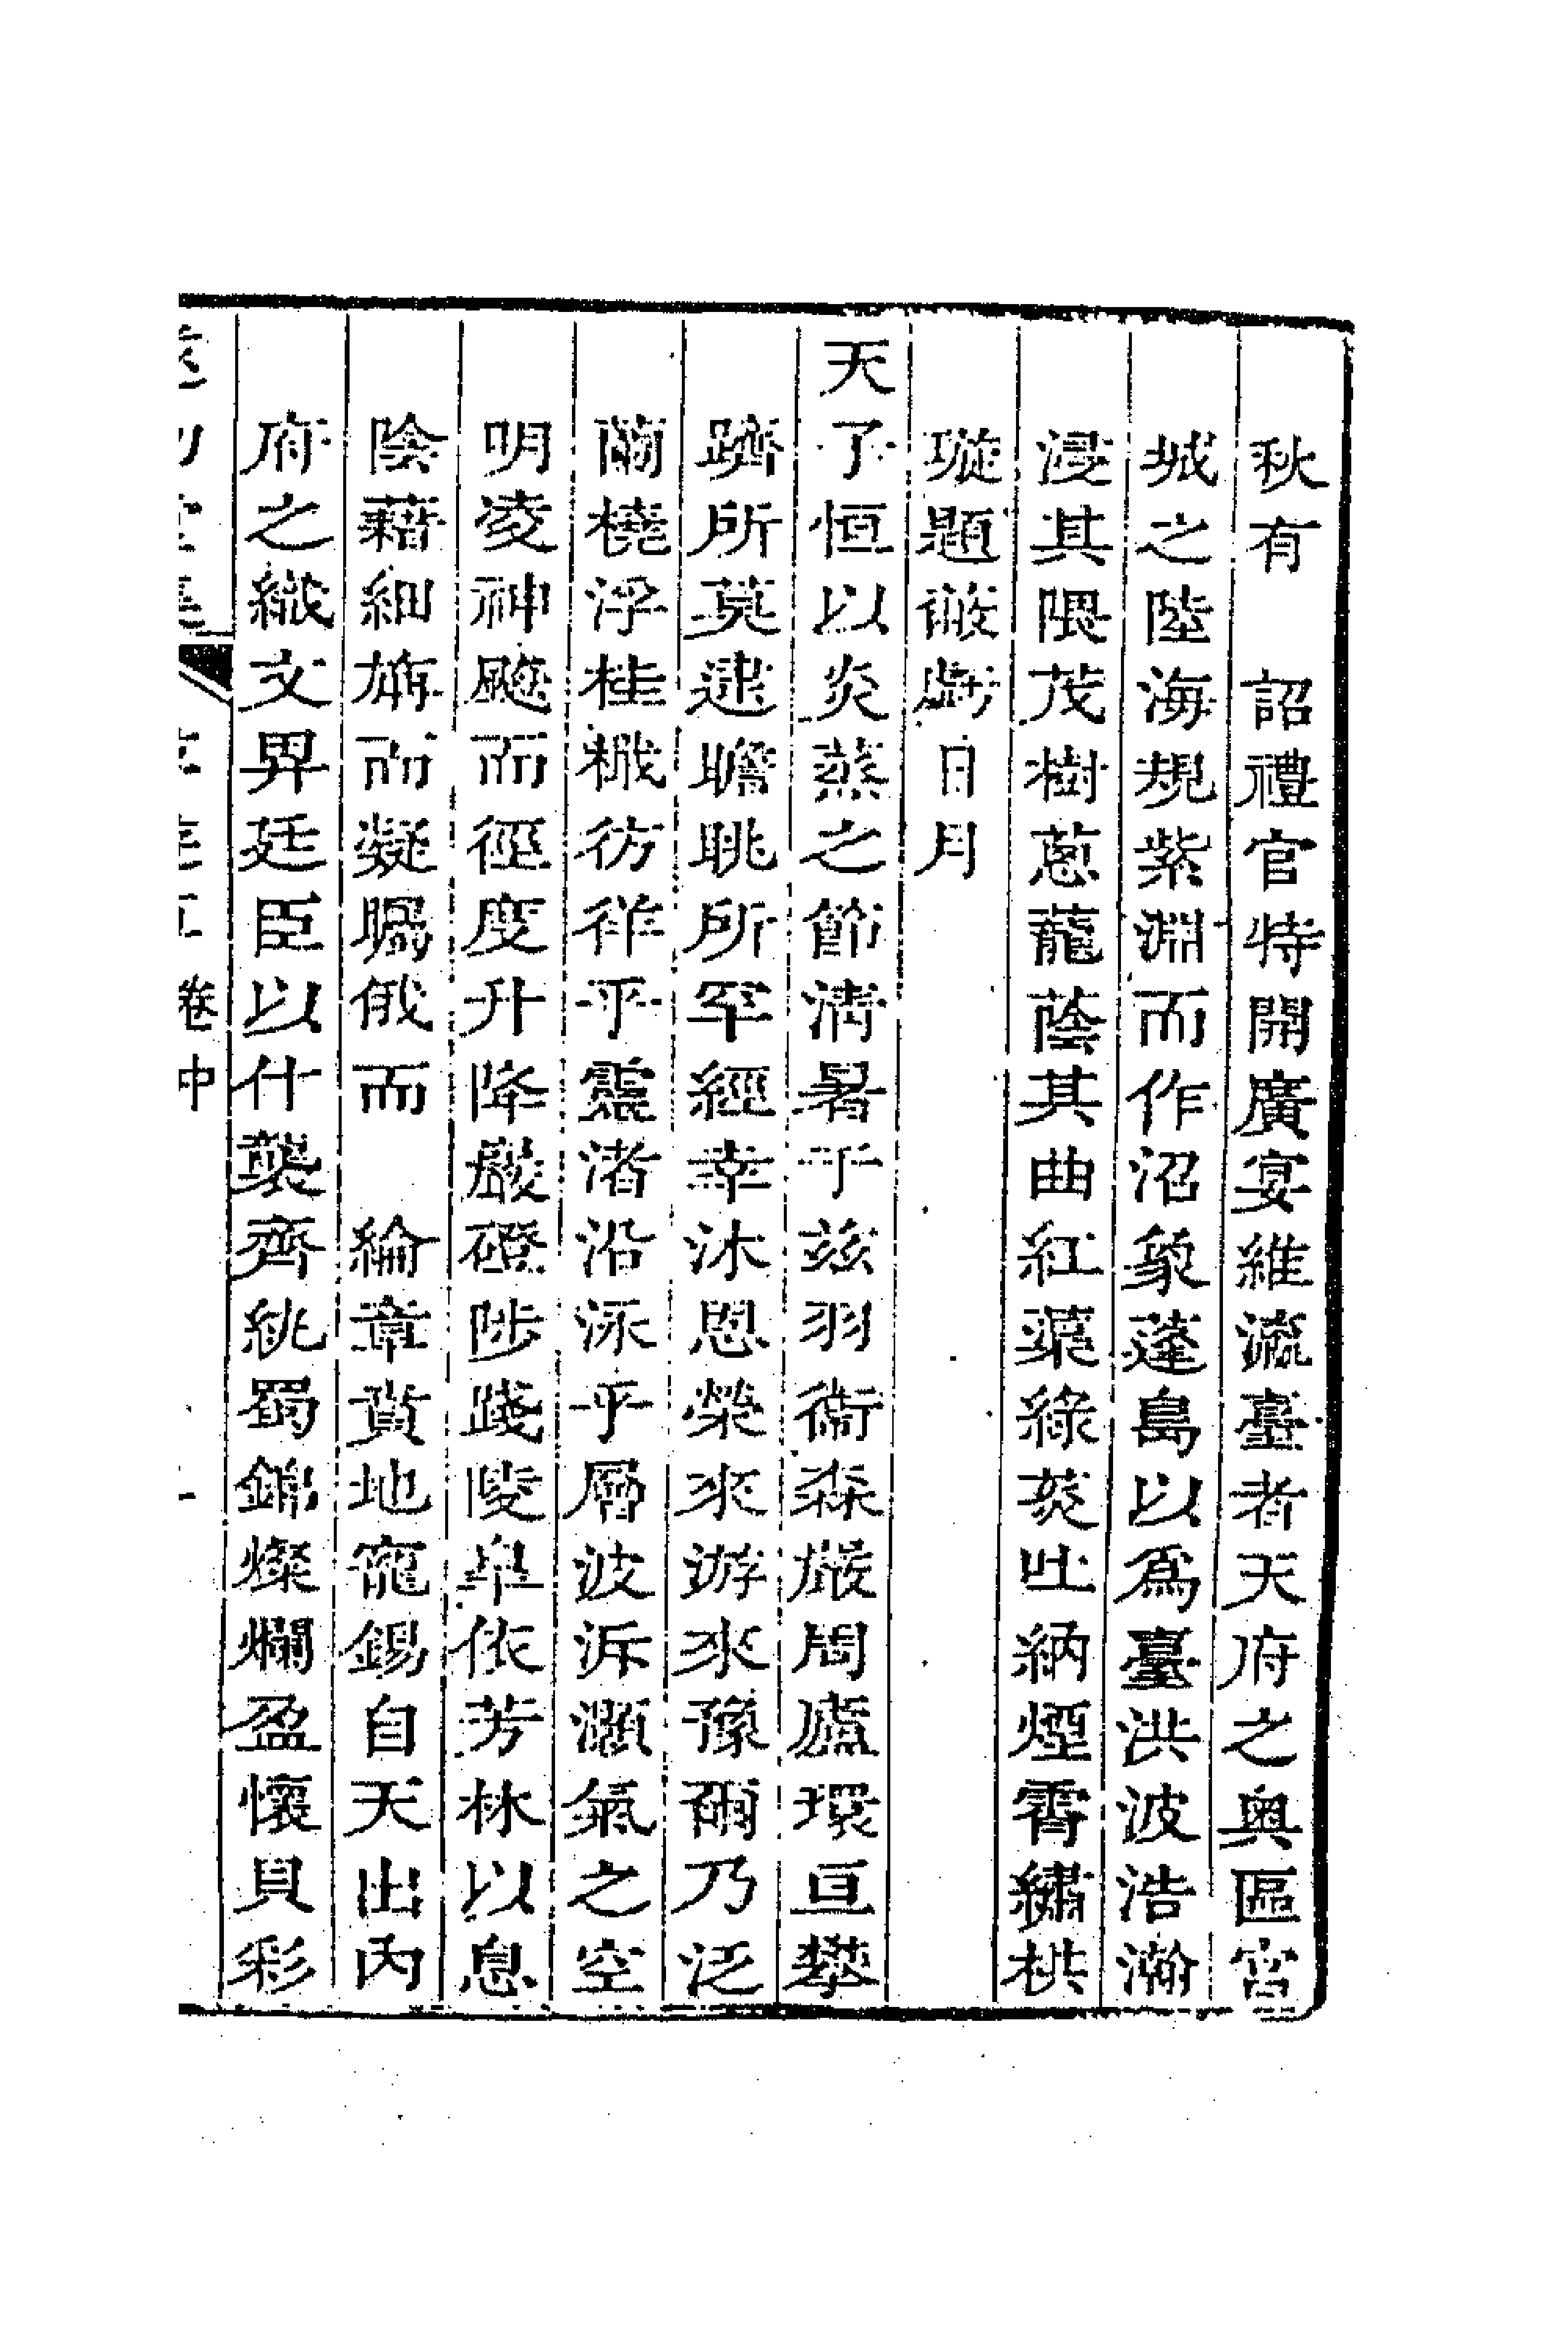 秋有　詔禮官特開廣宴維瀛臺者天府之奥區宮
城之陸海規紫淵而作沼象蓬島以爲臺洪波浩瀚
浸其隈茂樹蔥蘢蔭其曲紅蕖綠菼吐納煙霄繡栱
璇題蔽虧日月
天子恒以炎蒸之節淸暑于茲羽衞森嚴周廬環亘攀
躋所莫逮瞻眺所罕經幸沐恩榮來游來豫爾乃泛
蘭橈浮桂檝彷徉乎靈渚沿泳乎層波泝灝氣之空
明凌神飈而徑度升降巖磴陟踐陵皐依芳林以息
陰藉細旃而凝矚俄而　綸章賁地寵錫自天出內
府之織文畀廷臣以什襲齊紈蜀錦燦爛盈懷貝彩
卷中